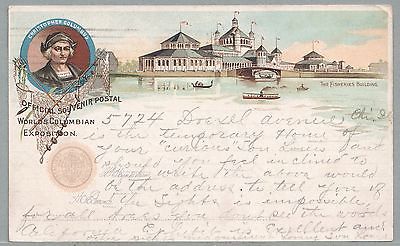 CHRISTOPHER COLUMBUS
OFFICIAL SOUVENIR POSTAL
WORLD'S COLUMBIAN
EXPOSITION.
THE FISHERIES BUILDING.
5724 Drexel avenue Chi.
is the temporary Home of
your "curious" son Louis and
should you feel inclined to
write the above would
be the address. to tell you of
the sights is impossible,
for all you the woods
California Exhibit is Excellent and